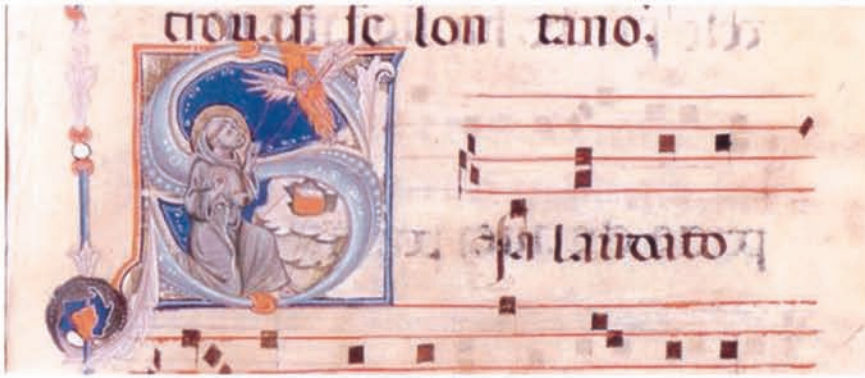 trou.si se lon tano.
Sia laudato